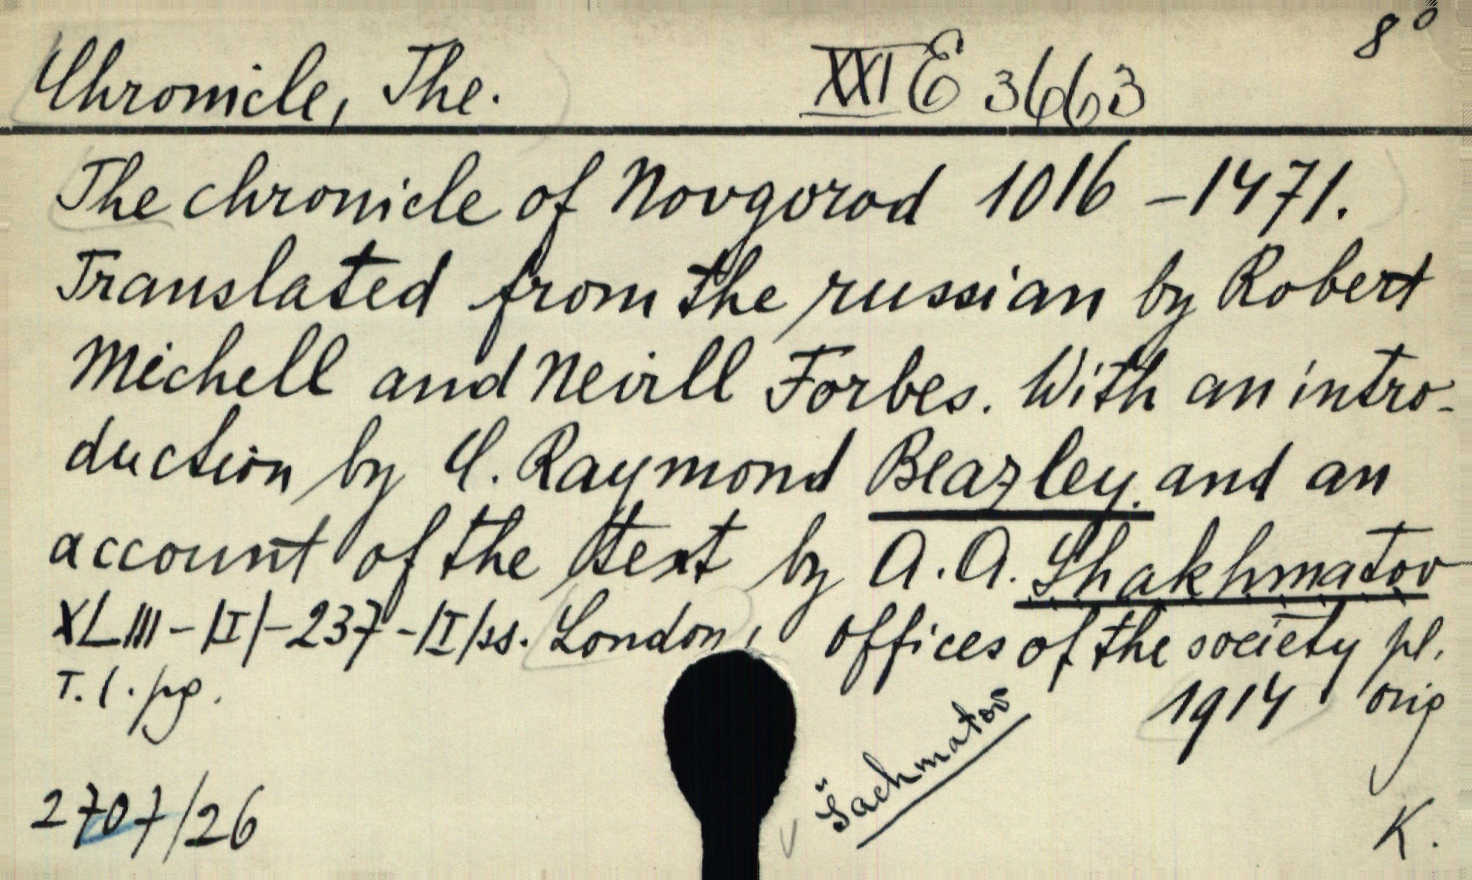 8°
Chronicle, The. XXI E 3663
The chronicle of Novgorod 1016 - 1471.
Translated from the russian by Robert
Michell and Nevill Forbes. With an intro-
duction by C. Raymond Beazley and an
account of the text by A. A. Shakhmatov
XLIII - |I| - 237 - |I| ss. London, offices of the society pl.
T. 1. pg. 1914 orig
Šachmatov
2707/26 K.